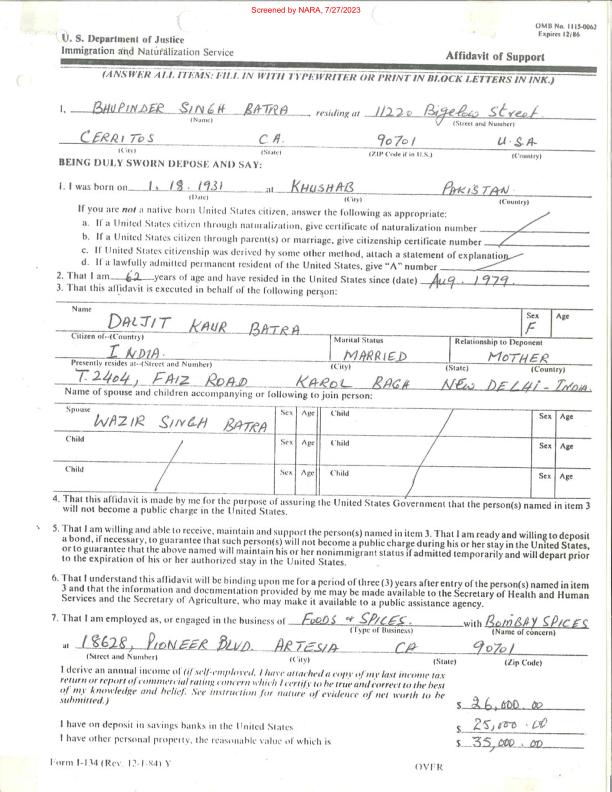 Screened by NARA, 7/27/2023
OMB No. 1115-0062
Expires 12/86
U. S. Department of Justice
Immigration and Naturalization Service
Affidavit of Support
(ANSWER ALL ITEMS: FILL IN WITH TYPEWRITER OR PRINT IN BLOCK LETTERS IN INK.)
I, BHUPINDER SINGH BATRA, residing at 11220 Bigelow Street.
(Name) (Street and Number)
CERRITOS CA. 90701 U.S.A
(City) (State) (ZIP Code if in U.S.) (Country)
BEING DULY SWORN DEPOSE AND SAY:
1. I was born on 1. 18. 1931 at KHUSHAB PAKISTAN.
(Date) (City) (Country)
If you are not a native born United States citizen, answer the following as appropriate:
a. If a United States citizen through naturalization, give certificate of naturalization number
b. If a United States citizen through parent(s) or marriage, give citizenship certificate number
c. If United States citizenship was derived by some other method, attach a statement of explanation.
d. If a lawfully admitted permanent resident of the United States, give "A" number
2. That I am 62 years of age and have resided in the United States since (date) Aug. 1979.
3. That this affidavit is executed in behalf of the following person:
Name Sex Age
DALJIT KAUR BATRA F
Citizen of--(Country) Marital Status Relationship to Deponent
INDIA. MARRIED MOTHER
Presently resides at--(Street and Number) (City) (State) (Country)
T-2404, FAIZ ROAD KAROL BAGA NEW DELHI - INDIA.
Name of spouse and children accompanying or following to join person:
Spouse Sex Age Child Sex Age
WAZIR SINGH BATRA
Child Sex Age Child Sex Age
Child Sex Age Child Sex Age
4. That this affidavit is made by me for the purpose of assuring the United States Government that the person(s) named in item 3
will not become a public charge in the United States.
5. That I am willing and able to receive, maintain and support the person(s) named in item 3. That I am ready and willing to deposit
a bond, if necessary, to guarantee that such person(s) will not become a public charge during his or her stay in the United States,
or to guarantee that the above named will maintain his or her nonimmigrant status if admitted temporarily and will depart prior
to the expiration of his or her authorized stay in the United States.
6. That I understand this affidavit will be binding upon me for a period of three (3) years after entry of the person(s) named in item
3 and that the information and documentation provided by me may be made available to the Secretary of Health and Human
Services and the Secretary of Agriculture, who may make it available to a public assistance agency.
7. That I am employed as, or engaged in the business of FOODS & SPICES. with BOMBAY SPICES
(Type of Business) (Name of concern)
at 18628, PIONEER BLVD. ARTESIA CA 90701
(Street and Number) (City) (State) (Zip Code)
I derive an annual income of (if self-employed, I have attached a copy of my last income tax
return or report of commercial rating concern which I certify to be true and correct to the best
of my knowledge and belief. See instruction for nature of evidence of net worth to be
submitted.) $ 26,000.00
I have on deposit in savings banks in the United States $ 25,000.00
I have other personal property, the reasonable value of which is $ 35,000.00
Form I-134 (Rev. 12-1-84) Y OVER